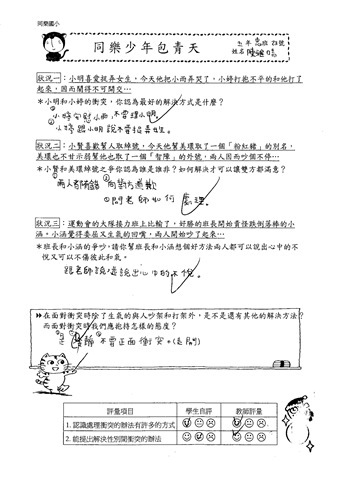 同樂國小
同樂少年包青天
五年 忠班 23號
姓名
狀況一：小明喜愛捉弄女生，今天他把小雨弄哭了，小婷打抱不平的和他打了
起來，因而鬧得不可開交…
＊小明和小婷的衝突，你認為最好的解決方式是什麼？
小婷 小明說不要捉弄女生。
狀況二：小賢喜歡幫人取綽號，今天他幫美環取了一個「粉紅豬」的別名，
美環也不甘示弱幫他取了一個「智障」的外號，兩人因而吵個不停…
＊小賢和美環綽號之爭你認為誰是誰非？如何解決才可以讓雙方都滿意？
①兩人都有錯 向對方道歉
②問老師如何處理。
狀況三：運動會的大隊接力班上比輸了，好勝的班長開始責怪跌倒落棒的小
涵。小涵覺得委屈又生氣的回嘴，兩人開始吵了起來…
＊班長和小涵的爭吵，請你幫班長和小涵想個好方法兩人都可以說出心中的不
悅又可以不傷彼此和氣。
跟老師說 說出心中的不悅。
在面對衝突時除了生氣的與人吵架和打架外，是不是還有其他的解決方法？
而面對衝突時我們應抱持怎樣的態度？
不要正面衝突
評量項目 學生自評 教師評量
1.認識處理衝突的辦法有許多的方式
2.能提出解決性別間衝突的辦法